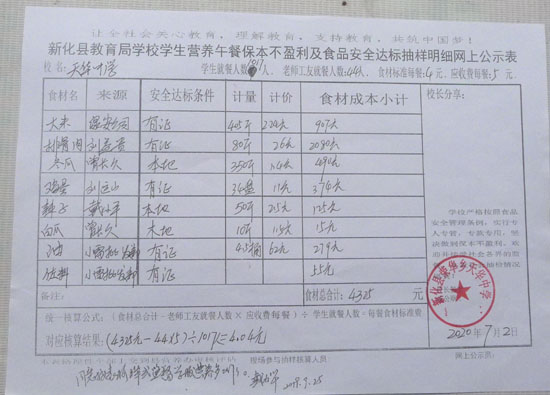 让全社会关心教育，理解教育，支持教育，共筑中国梦！
新化县教育局学校学生营养午餐保本不盈利及食品安全达标抽样明细网上公示表
校名：天华中学 学生就餐人数1017人、老师工友就餐人数：44人、食材标准每餐：4元、应收费每餐：5元、
食材名 来源 安全达标条件 计量 计价 食材成本小计 校长分享：
大米 有证 405斤 2.24元 907元
排骨肉 刘益贵 有证 80斤 26元 2080元
冬瓜 曾长久 本地 350斤 1.4元 490元
鸡蛋 刘远山 有证 34盘 11元 374元
辣子 本地 50斤 2.5元 125元
白瓜 曾长久 本地 10斤 1.5元 15元
油 有证 4.5桶 62元 279元
佐料 有证 55元
学校严格按照食品
安全管理条例，实行专
人专管，专款专用，坚
决做到保本不盈利，欢
迎共建社会各界的监
抽检情况
备注： 食材总合计：4325 元
新化县荣华乡天华中学
统一核算公式：（食材总合计－老师工友就餐人数×应收费每餐）÷学生就餐人数＝每餐食材标准费
对应核算结果：(4325元－44×5)÷1017＝4.04元
2020年7月2日
现场参与抽样核算人员： 网上公示员：